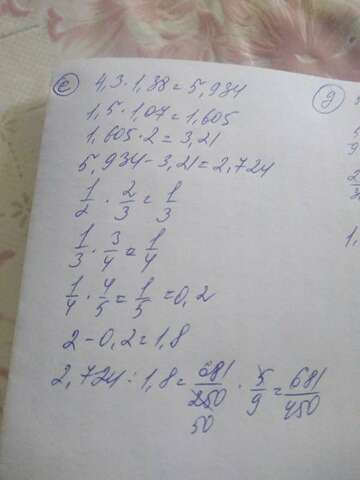 е 4,3 · 1,38 = 5,934
1,5 · 1,07 = 1,605
1,605 · 2 = 3,21
5,934 - 3,21 = 2,724
1/2 · 2/3 = 1/3
1/3 · 3/4 = 1/4
1/4 · 4/5 = 1/5 = 0,2
2 - 0,2 = 1,8
2,724 : 1,8 = 681/250 · 5/9 = 681/450
50
д